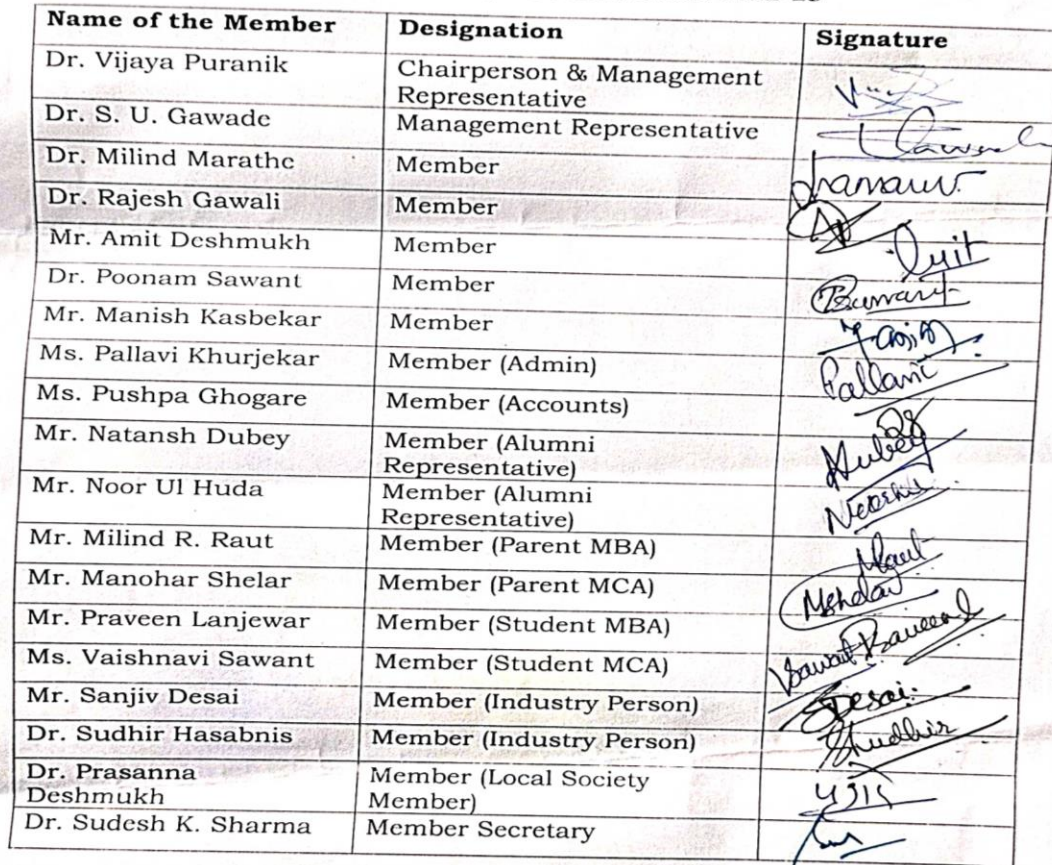 Name of the Member Designation Signature
Dr. Vijaya Puranik Chairperson & Management
Representative
Dr. S. U. Gawade Management Representative
Dr. Milind Marathe Member
Dr. Rajesh Gawali Member
Mr. Amit Deshmukh Member Amit
Dr. Poonam Sawant Member
Mr. Manish Kasbekar Member
Ms. Pallavi Khurjekar Member (Admin) Pallavi
Ms. Pushpa Ghogare Member (Accounts)
Mr. Natansh Dubey Member (Alumni
Representative) Dubey
Mr. Noor Ul Huda Member (Alumni
Representative)
Mr. Milind R. Raut Member (Parent MBA) MRaut
Mr. Manohar Shelar Member (Parent MCA)
Mr. Praveen Lanjewar Member (Student MBA)
Ms. Vaishnavi Sawant Member (Student MCA) Sawant
Mr. Sanjiv Desai Member (Industry Person) SDesai
Dr. Sudhir Hasabnis Member (Industry Person)
Dr. Prasanna Member (Local Society
Deshmukh Member)
Dr. Sudesh K. Sharma Member Secretary